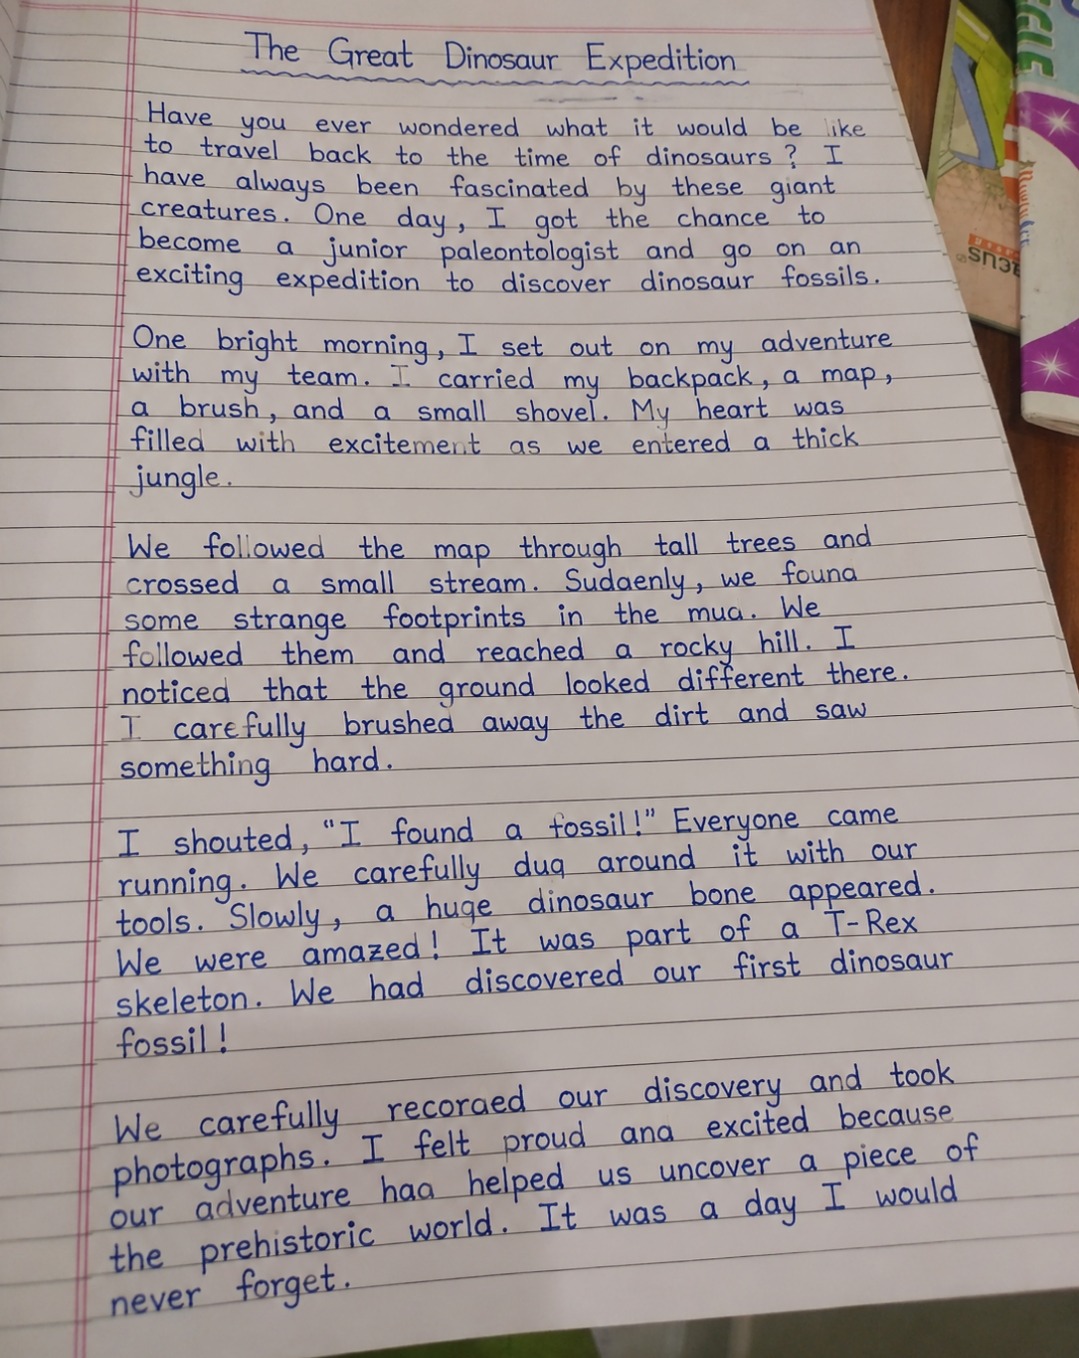 The Great Dinosaur Expedition
Have you ever wondered what it would be like
to travel back to the time of dinosaurs ? I
have always been fascinated by these giant
creatures. One day, I got the chance to
become a junior paleontologist and go on an
exciting expedition to discover dinosaur fossils.
One bright morning, I set out on my adventure
with my team. I carried my backpack, a map,
a brush, and a small shovel. My heart was
filled with excitement as we entered a thick
jungle.
We followed the map through tall trees and
crossed a small stream. Suddenly, we found
some strange footprints in the mud. We
followed them and reached a rocky hill. I
noticed that the ground looked different there.
I carefully brushed away the dirt and saw
something hard.
I shouted, "I found a fossil!" Everyone came
running. We carefully dug around it with our
tools. Slowly, a huge dinosaur bone appeared.
We were amazed! It was part of a T-Rex
skeleton. We had discovered our first dinosaur
fossil!
We carefully recorded our discovery and took
photographs. I felt proud and excited because
our adventure had helped us uncover a piece of
the prehistoric world. It was a day I would
never forget.